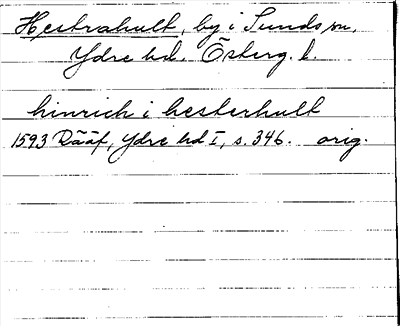 Hestrahult, by i Sunds sn,
Ydre hd. Österg. l.
hinrich i hesterhult
1593 Rääf, Ydre hd I, s. 346. orig.